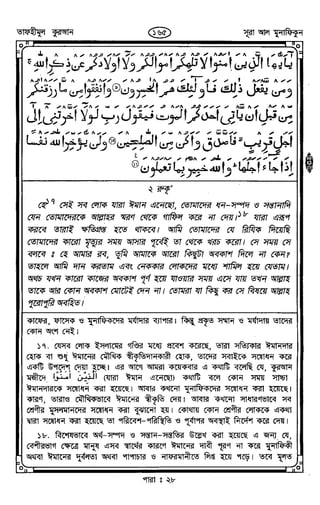 তাফহীমুল কুরআন
১৬৫
সূরা আল মুনাফিকুন
يٰٓاَيُّهَا الَّذِيْنَ اٰمَنُوْا لَا تُلْهِكُمْ اَمْوَالُكُمْ وَلَآ اَوْلَادُكُمْ عَنْ ذِكْرِ اللّٰهِ ۚ
وَمَنْ يَّفْعَلْ ذٰلِكَ فَاُولٰٓئِكَ هُمُ الْخٰسِرُوْنَ ۝ وَاَنْفِقُوْا مِنْ مَّا رَزَقْنٰكُمْ
مِّنْ قَبْلِ اَنْ يَّاْتِيَ اَحَدَكُمُ الْمَوْتُ فَيَقُوْلَ رَبِّ لَوْلَآ اَخَّرْتَنِيْٓ اِلٰٓى
اَجَلٍ قَرِيْبٍ ۙ فَاَصَّدَّقَ وَاَكُنْ مِّنَ الصّٰلِحِيْنَ ۝ وَلَنْ يُّؤَخِّرَ اللّٰهُ نَفْسًا
اِذَا جَآءَ اَجَلُهَا ۭ وَاللّٰهُ خَبِيْرٌۢ بِمَا تَعْمَلُوْنَ ۝
২ রুকু'
হে১৭ সেই সব লোক যারা ঈমান এনেছো, তোমাদের ধন-সম্পদ ও সন্তানাদি
যেন তোমাদেরকে আল্লাহর স্মরণ থেকে গাফিল করে না দেয়।১৮ যারা এরূপ
করবে তারাই ক্ষতিগ্রস্ত হতে থাকবে। আমি তোমাদের যে রিযিক দিয়েছি
তোমাদের কারো মৃত্যুর সময় আসার পূর্বেই তা থেকে খরচ করো। সে সময় সে
বলবে : হে আমার রব, তুমি আমাকে আরো কিছুটা অবকাশ দিলে না কেন?
তাহলে আমি দান করতাম এবং নেককার লোকদের মধ্যে শামিল হয়ে যেতাম।
অথচ যখন কারো কাজের অবকাশ পূর্ণ হয়ে যাওয়ার সময় এসে যায় তখন আল্লাহ
তাকে আর কোন অবকাশ মোটেই দেন না। তোমরা যা কিছু কর সে বিষয়ে আল্লাহ
পুরোপুরি অবহিত।
কাফের, ফাসেক ও মুনাফিকদের মর্যাদার ব্যাপার। কিন্তু প্রকৃত সম্মান ও মর্যাদায় তাদের
কোন অংশ নেই।
১৭. যেসব লোক ইসলামের গণ্ডির মধ্যে প্রবেশ করেছে, তারা সত্যিকার ঈমানদার
হোক বা শুধু ঈমানের মৌখিক স্বীকৃতিদানকারী হোক, তাদের সবাইকে সম্বোধন করে
একটি উপদেশ দেয়া হচ্ছে। এর আগে আমরা কয়েকবার এ কথাটি বলেছি যে, কুরআন
মজীদে الَّذِيْنَ اٰمَنُوْا (যারা ঈমান এনেছো) কথাটি বলে কোন সময় সাচ্চা
ঈমানদারকে সম্বোধন করা হয়েছে। আবার কখনো মুনাফিকদের সম্বোধন করা হয়েছে।
কারণ, তারাও মৌখিকভাবে ঈমানের স্বীকৃতি দেয়। আবার কখনো সাধারণভাবে সব
শ্রেণীর মুসলমানদের সম্বোধন করা বুঝানো হয়। কোথায় কোন শ্রেণীর লোককে একথা
দ্বারা সম্বোধন করা হয়েছে তা পরিবেশ-পরিস্থিতি ও পূর্বাপর অবস্থাই নির্দেশ করে দেয়।
১৮. বিশেষভাবে অর্থ-সম্পদ ও সন্তান-সন্ততির উল্লেখ করা হয়েছে এ জন্য যে,
বেশীরভাগ ক্ষেত্রে মানুষ এসব স্বার্থের কারণে ঈমানের দাবী পূরণ না করে মুনাফিকী
অথবা ঈমানের দুর্বলতা অথবা পাপাচার ও নাফরমানীতে লিপ্ত হয়ে পড়ে। তবে মূলত
পারা : ২৮